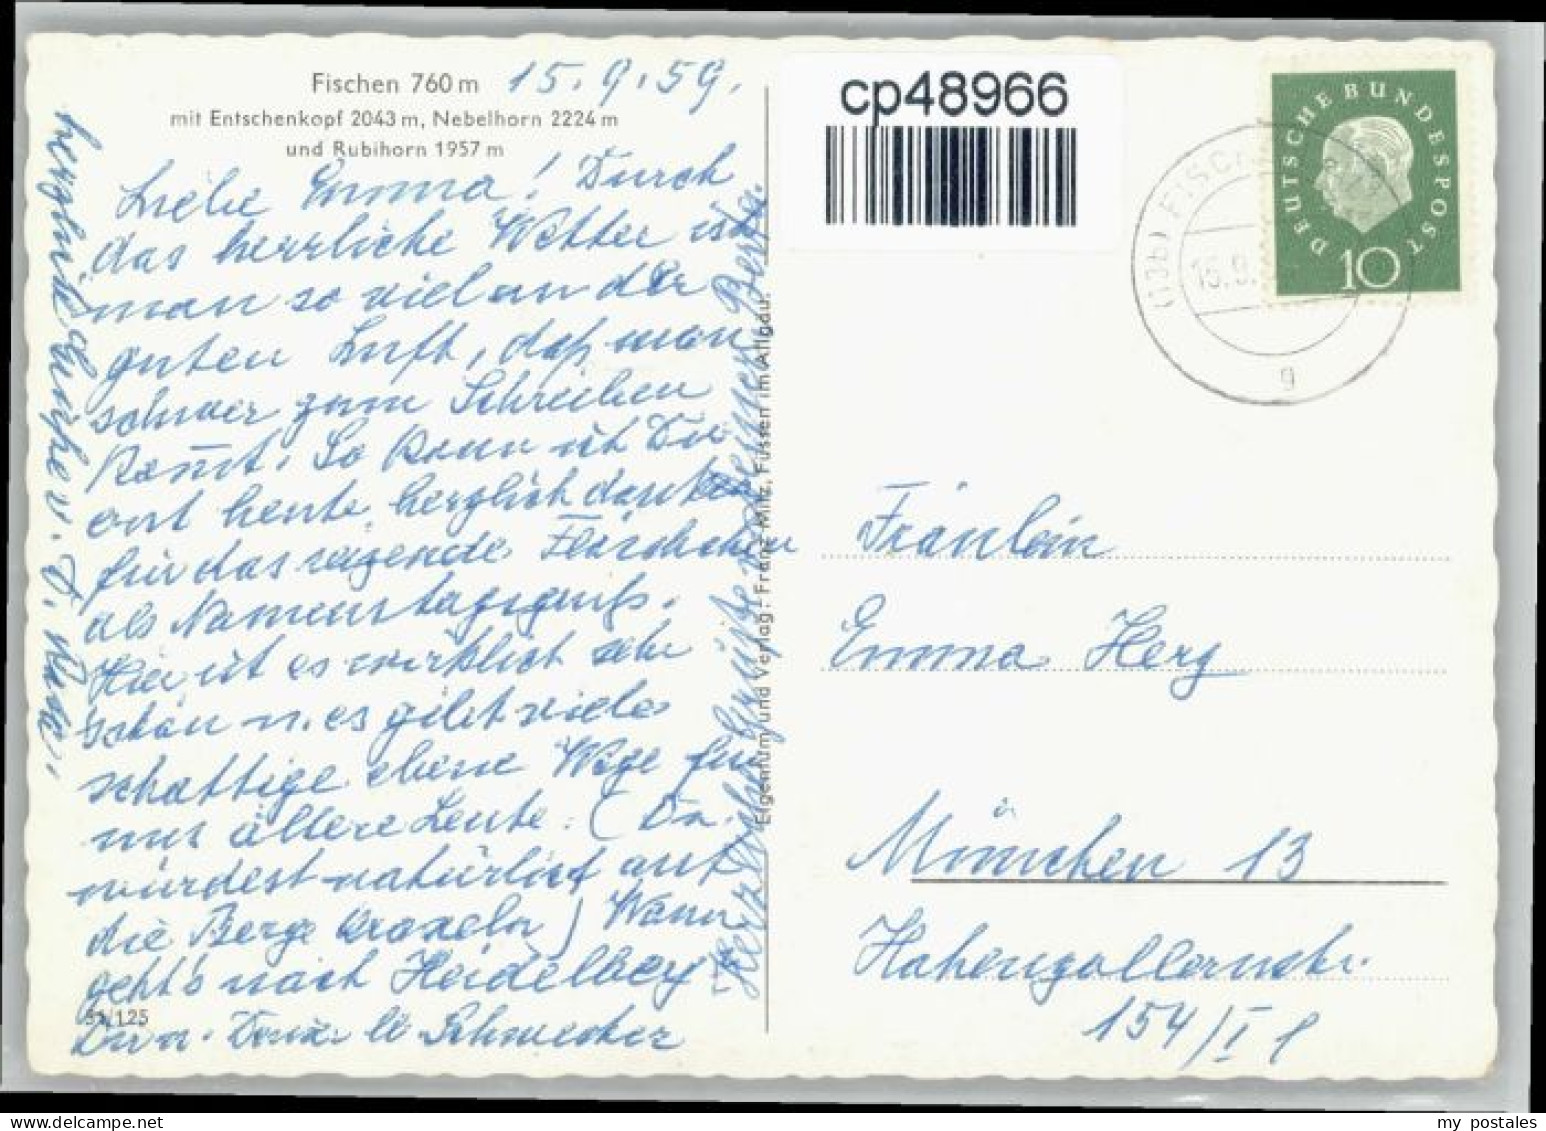 Fischen 760 m 15.9.59.
mit Entschenkopf 2043 m, Nebelhorn 2224 m
und Rubihorn 1957 m
Liebe Emma! Durch
das herrliche Wetter ist
man so viel an der
guten Luft, daß man
schwer zum Schreiben
kommt. So kann ich Dir
erst heute herzlich danken
für das reizende Fläschchen
als Namenstagsgruß.
Hier ist es wirklich sehr
schön u. es gibt viele
schattige ebene Wege für
uns ältere Leute. (Du
würdest natürlich auf
die Berge kraxeln) Wann
geht's nach Heidelberg
Dir u. Deiner lb Schwester
herzliche Grüße v. D.
Herzliche Grüße
51/125
Eigentum und Verlag: Franz Milz, Füssen im Allgäu.
cp48966
DEUTSCHE BUNDESPOST
10
(13b) FISCHEN
15.9.
g
Fräulein
Emma Herz
München 13
Hohenzollernstr.
154/I l
my postales